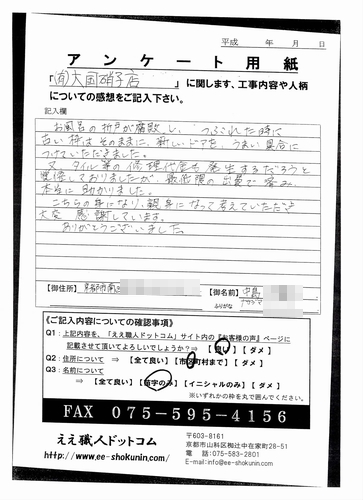 平成　　年　　月　　日
アンケート用紙
「(有)大国硝子店　　　」に関します、工事内容や人柄
についての感想をご記入下さい。
記入欄
お風呂の折戸が腐敗し、つぶれた時に
古い枠はそのままに、新しいドアを、うまい具合に
つけていただきました。
又、タイル等の修理代金も発生するだろうと
覚悟しておりましたが、最低限の出費で済み、
本当に助かりました。
こちらの身になり、親身になって考えていただき
大変感謝しています。
ありがとうございました。
【御住所】京都市南
【御名前】中島
ふりがな ナカジマ
《ご記入内容についての確認事項》
Q1：上記内容を、「ええ職人ドットコム」サイト内の『お客様の声』ページに
記載させて頂いてよろしいでしょうか？⇒【良い】【ダメ】
Q2：住所について ⇒【全て良い】【市区町村まで】【ダメ】
Q3：名前について
⇒【全て良い】【苗字のみ】【イニシャルのみ】【ダメ】
※いずれかの枠を丸で囲んでください。
FAX 075-595-4156
ええ職人ドットコム
http://www.ee-shokunin.com/
〒603-8161
京都市山科区椥辻中在家町28-51
電　話：075-583-2801
E-mail:info@ee-shokunin.com